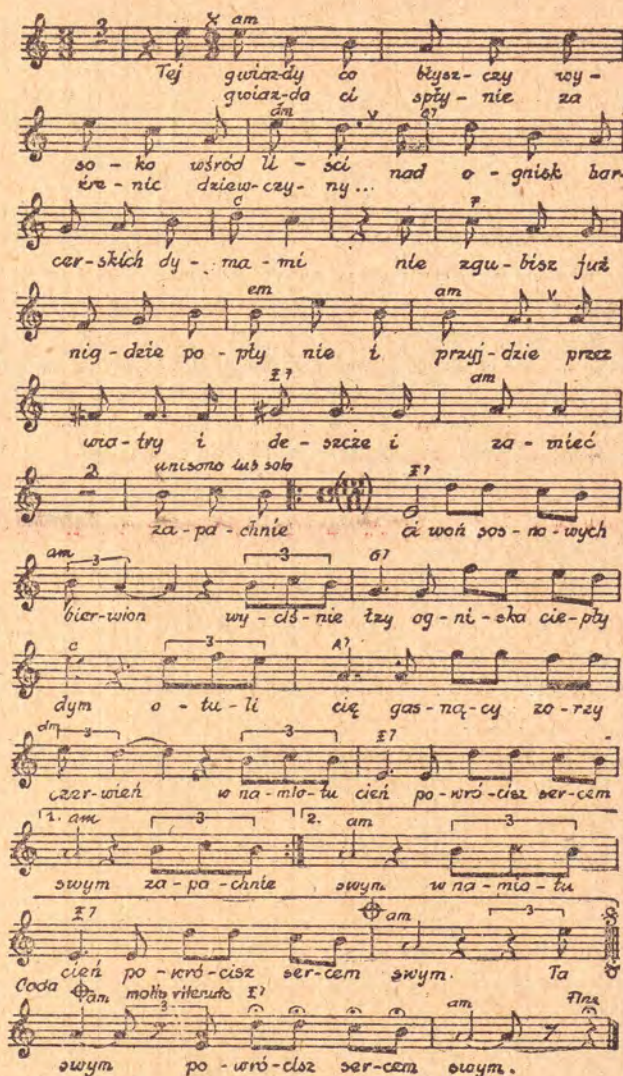 2 am
Tej gwiaz-dy co błysz-czy wy-
gwiaz-da ci spły-nie za
dm V G7
so-ko wśród li-ści nad o-gnisk har-
źre-nic dziew-czy-ny...
C F
cer-skich dy-ma-mi nie zgu-bisz już
em am V
nig-dzie po-pły nie i przyj-dzie przez
E7 am
wia-try i de-szcze i za-mieć
2 unisono lub solo E7
za-pa-chnie ci woń sos-no-wych
am 3 3 G7
bier-wion wy-ciś-nie łzy og-ni-ska cie-pły
C 3 A7
dym o-tu-li cię gas-ną-cy zo-rzy
dm 3 3 E7
czer-wień w na-mio-tu cień po-wró-cisz ser-cem
1. am 3 2. am 3
swym za-pa-chnie swym w na-mio-tu
E7 am 3
cień po-wró-cisz ser-cem swym. Ta
Coda am molto ritenuto E7 am Fine
3
swym po-wró-cisz ser-cem swym.